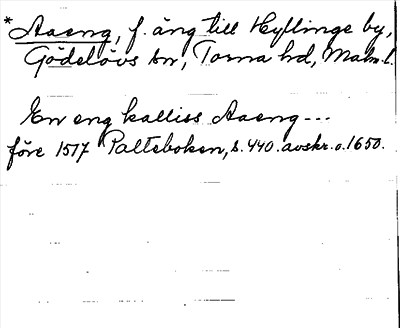 *Aaeng, f. äng till Hyllinge by,
Gödelövs sn, Torna hd, Malm. l.
En eng kalliss Aaeng ---
före 1517 Palteboken, s. 440. avskr. o. 1650.